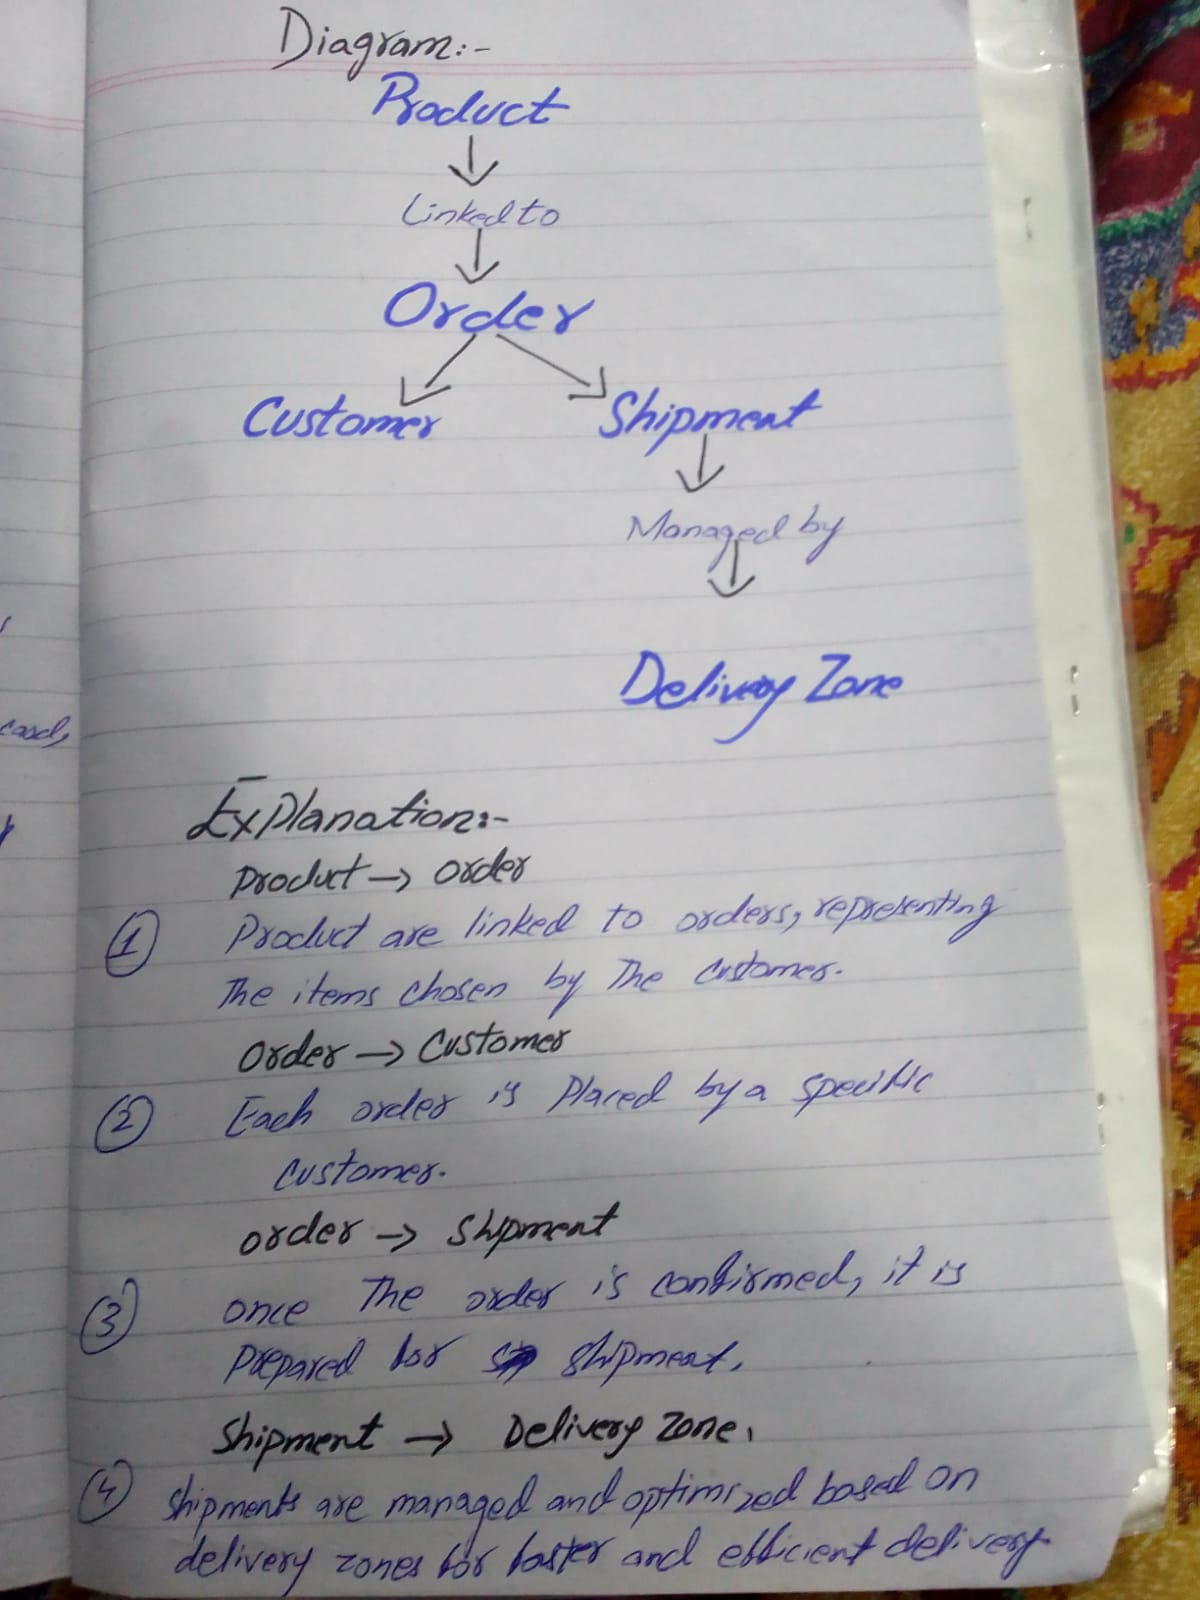 Diagram:-
Product
Linked to
Order
Customer Shipment
Managed by
Delivery Zone
Explanation:-
Product → Order
① Product are linked to orders, representing
The items chosen by The customer.
Order → Customer
② Each order is Placed by a specific
customer.
order → Shipment
③ once The order is confirmed, it is
Prepared for shipment.
Shipment → Delivery Zone.
④ Shipments are managed and optimized based on
delivery zones for faster and efficient delivery